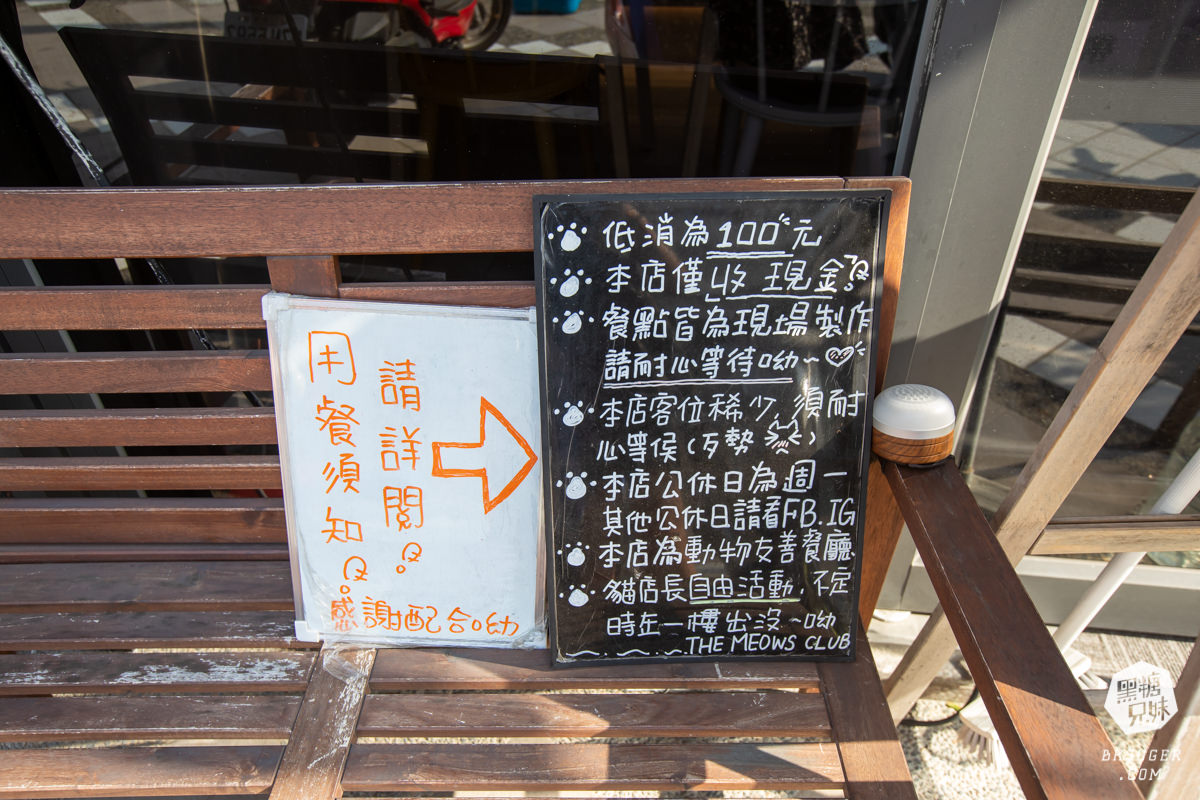 用餐須知
請詳閱
感謝配合呦
低消為100元
本店僅收現金
餐點皆為現場製作
請耐心等待呦~
本店客位稀少,須耐
心等侯(歹勢 )
本店公休日為週一
其他公休日請看FB.IG
本店為動物友善餐廳
貓店長自由活動,不定
時在一樓出沒~呦
THE MEOWS CLUB
黑糖
兄妹
BROUGER
.COM